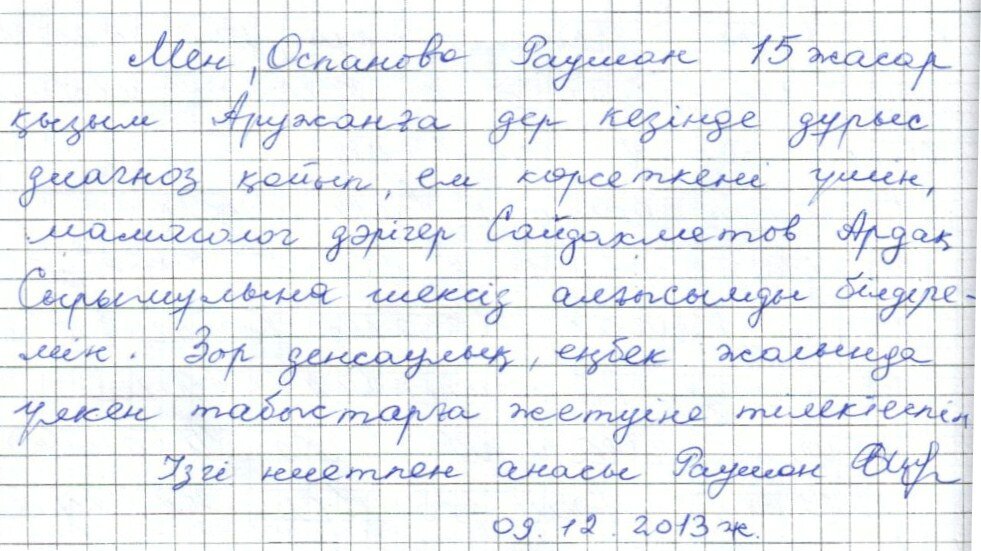 Мен, Оспанова Раушан 15 жасар
қызым Аружанға дер кезінде дұрыс
диагноз қойып, ем көрсеткені үшін,
маммолог дәрігер Сайдахметов Ардақ
Сырымұлына шексіз алғысымды білдіре-
мін. Зор денсаулық, еңбек жолында
үлкен табыстарға жетуіне тілектеспін
Ізгі ниетпен анасы Раушан
09.12.2013ж.